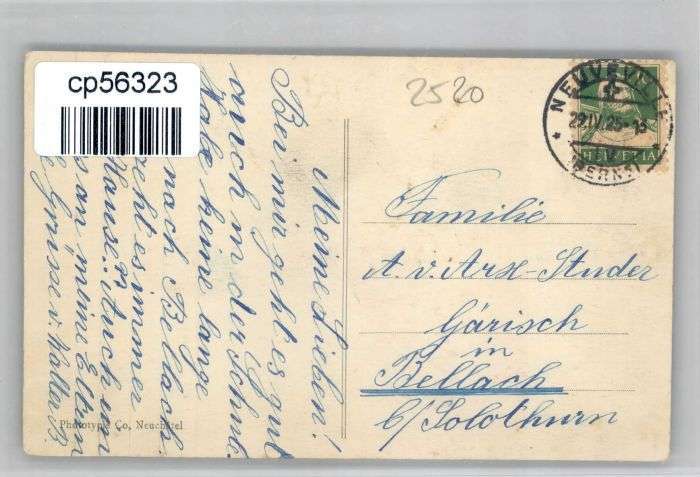 cp56323
2520
NEUVEVILLE
29.IV.25-15
(BERNE)
HELVETIA
Meine Lieben!
Bei mir geht es gut
auch in der Schule
Habe keine lange
nach Bellach.
geht es immer
Hause
an meine Eltern
Familie
A. v. Arx-Studer
Gärisch
in
Bellach
b/Solothurn
Phototypie Co, Neuchâtel